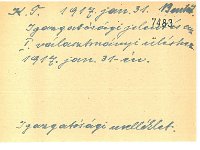 K. T. 1917. jan. 31. Bankó
7983
Igazgatósági jelentés az
I. választmányi ülésre
1917. jan. 31-én.
Igazgatósági melléklet.